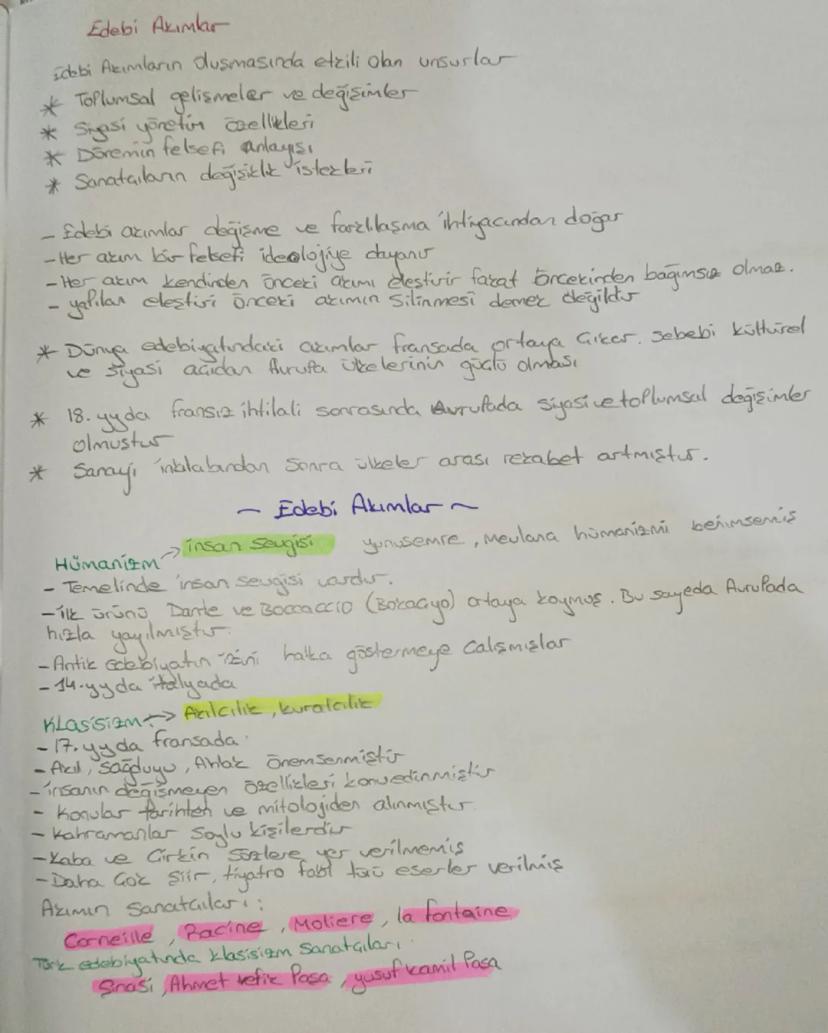 Edebi Akımlar
Edebi Akımların oluşmasında etkili olan unsurlar
* Toplumsal gelişmeler ve değişimler
* Siyasi yönetim özellikleri
* Dönemin felsefi anlayışı
* Sanatçıların değişiklik istekleri
- Edebi akımlar değişme ve farklılaşma ihtiyacından doğar
- Her akım bir felsefi ideolojiye dayanır
- Her akım kendinden önceki akımı eleştirir fakat öncekinden bağımsız olmaz.
- yapılan eleştiri önceki akımın silinmesi demek değildir
* Dünya edebiyatındaki akımlar fransada ortaya çıkar. Sebebi kültürel
ve siyasi açıdan Avrupa ülkelerinin güçlü olması
* 18. yy da fransız ihtilali sonrasında Avrupada siyasi ve toplumsal değişimler
olmuştur
* Sanayi inkılabından sonra ülkeler arası rekabet artmıştır.
~ Edebi Akımlar ~
Hümanizm → insan sevgisi yunusemre, Mevlana hümanizmi benimsemiş
- Temelinde insan sevgisi vardır.
- ilk ürünü Dante ve Boccaccio (Bokaçyo) ortaya koymuş. Bu sayeda Avrupada
hızla yayılmıştır.
- Antik edebiyatın izini halka göstermeye çalışmışlar
- 14. yy da italyada
Klasisizm → Akılcılık, kuralcılık
- 17. yy da fransada
- Akıl, sağduyu, Ahlak önemsenmiştir
- insanın değişmeyen özellikleri konu edinmiştir
- Konular tarihten ve mitolojiden alınmıştır
- Kahramanlar Soylu kişilerdir
- Kaba ve Çirkin sözlere yer verilmemiş
- Daha çok Şiir, tiyatro fabl türü eserler verilmiş
Akımın Sanatçıları:
Corneille, Racine, Moliere, la fontaine
Türk edebiyatında klasisizm sanatçıları
Şinasi, Ahmet vefik Paşa, yusuf kamil Paşa